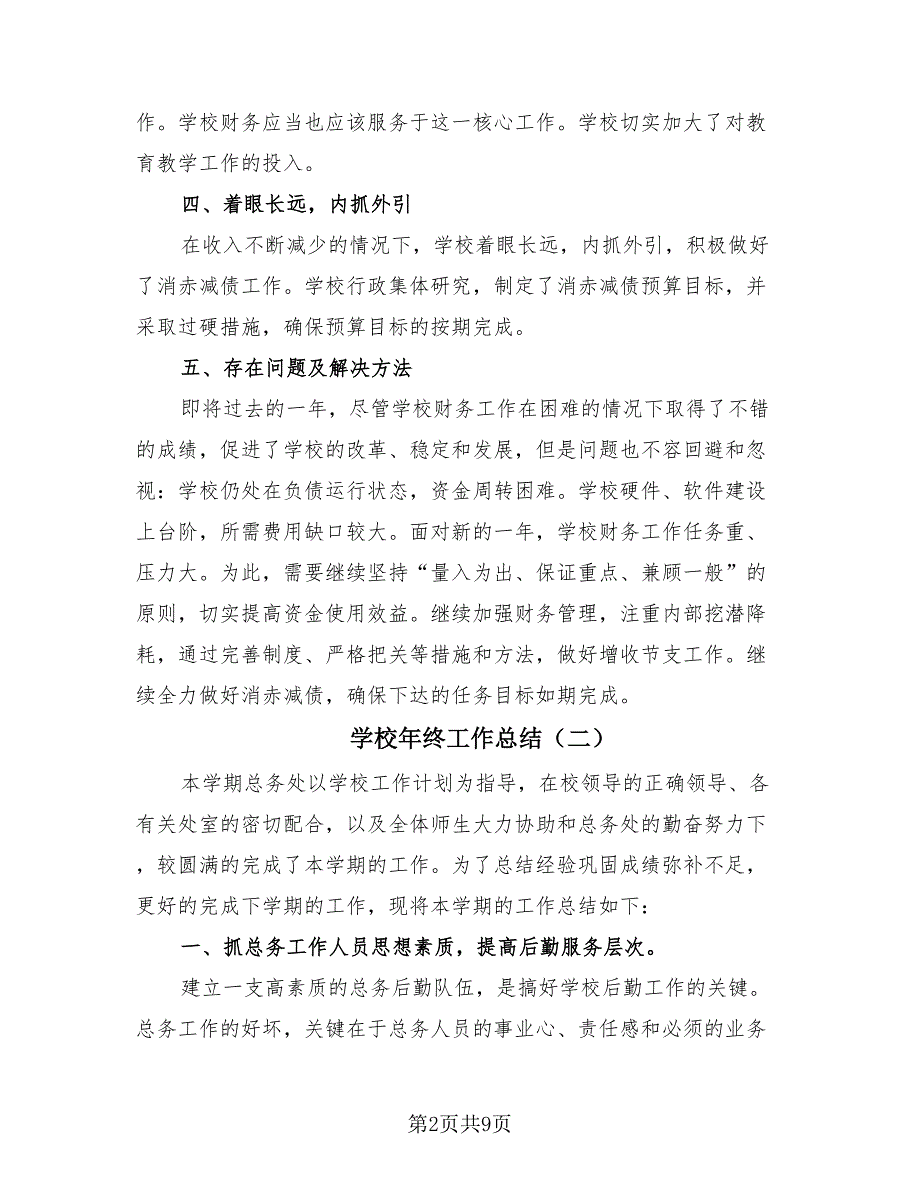 作。学校财务应当也应该服务于这一核心工作。学校切实加大了对教
育教学工作的投入。
四、着眼长远，内抓外引
在收入不断减少的情况下，学校着眼长远，内抓外引，积极做好
了消赤减债工作。学校行政集体研究，制定了消赤减债预算目标，并
采取过硬措施，确保预算目标的按期完成。
五、存在问题及解决方法
即将过去的一年，尽管学校财务工作在困难的情况下取得了不错
的成绩，促进了学校的改革、稳定和发展，但是问题也不容回避和忽
视：学校仍处在负债运行状态，资金周转困难。学校硬件、软件建设
上台阶，所需费用缺口较大。面对新的一年，学校财务工作任务重、
压力大。为此，需要继续坚持“量入为出、保证重点、兼顾一般”的
原则，切实提高资金使用效益。继续加强财务管理，注重内部挖潜降
耗，通过完善制度、严格把关等措施和方法，做好增收节支工作。继
续全力做好消赤减债，确保下达的任务目标如期完成。
学校年终工作总结（二）
本学期总务处以学校工作计划为指导，在校领导的正确领导、各
有关处室的密切配合，以及全体师生大力协助和总务处的勤奋努力下
，较圆满的完成了本学期的工作。为了总结经验巩固成绩弥补不足，
更好的完成下学期的工作，现将本学期的工作总结如下：
一、抓总务工作人员思想素质，提高后勤服务层次。
建立一支高素质的总务后勤队伍，是搞好学校后勤工作的关键。
总务工作的好坏，关键在于总务人员的事业心、责任感和必须的业务
第2页共9页